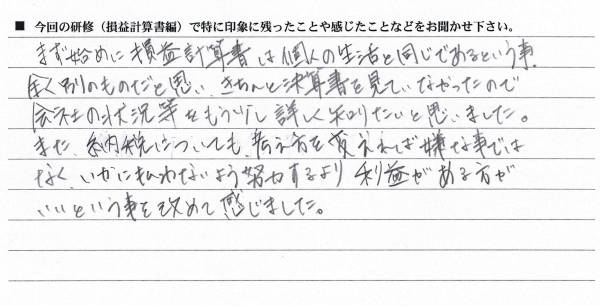 ■ 今回の研修（損益計算書編）で特に印象に残ったことや感じたことなどをお聞かせ下さい。
まず始めに損益計算書は個人の生活と同じであるという事、
全く別のものだと思い、きちんと決算書を見ていなかったので
会社の状況等をもう少し詳しく知りたいと思いました。
また、納税についても、考え方を変えれば嫌な事では
なく、いかに払わないよう努力するより利益がある方が
いいという事を改めて感じました。